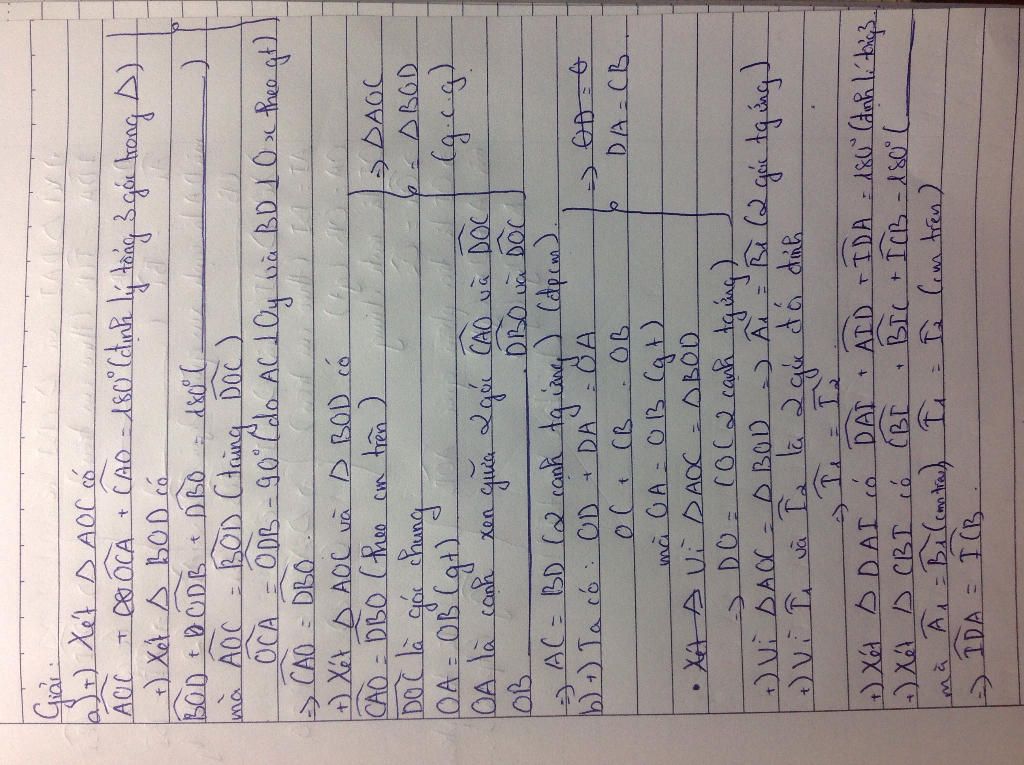 Giải:
a) +) Xét Δ AOC có
AOC + OCA + CAO = 180° (định lý tổng 3 góc trong Δ)
+) Xét Δ BOD có
BOD + ODB + DBO = 180° ( )
mà AOC = BOD (trùng DOC)
OCA = ODB = 90° (do AC⊥Oy và BD⊥Ox theo gt)
=> CAO = DBO.
+) Xét Δ AOC và Δ BOD có
CAO = DBO (theo cm trên) => ΔAOC
DOC là góc chung = ΔBOD
OA = OB (gt) (g.c.g)
OA là cạnh xen giữa 2 góc CAO và DOC
OB DBO và DOC
=> AC = BD (2 cạnh tg ứng) (đpcm)
b) +) Ta có: OD + DA = OA => OA = A
OC + CB = OB DA = CB.
mà OA = OB (gt)
• Xét Δ Vì ΔAOC = ΔBOD
=> DO = CO (2 cạnh tg ứng)
+) Vì ΔAOC = ΔBOD => A1 = B1 (2 góc tg ứng)
+) Vì I1 và I2 là 2 góc đối đỉnh
=> I1 = I2
+) Xét Δ DAI có DAI + AID + IDA = 180° (định lí tổng 3
+) Xét Δ CBI có CBI + BIC + ICB = 180° (
mà A1 = B1 (cm trên) I1 = I2 (cm trên)
=> IDA = ICB